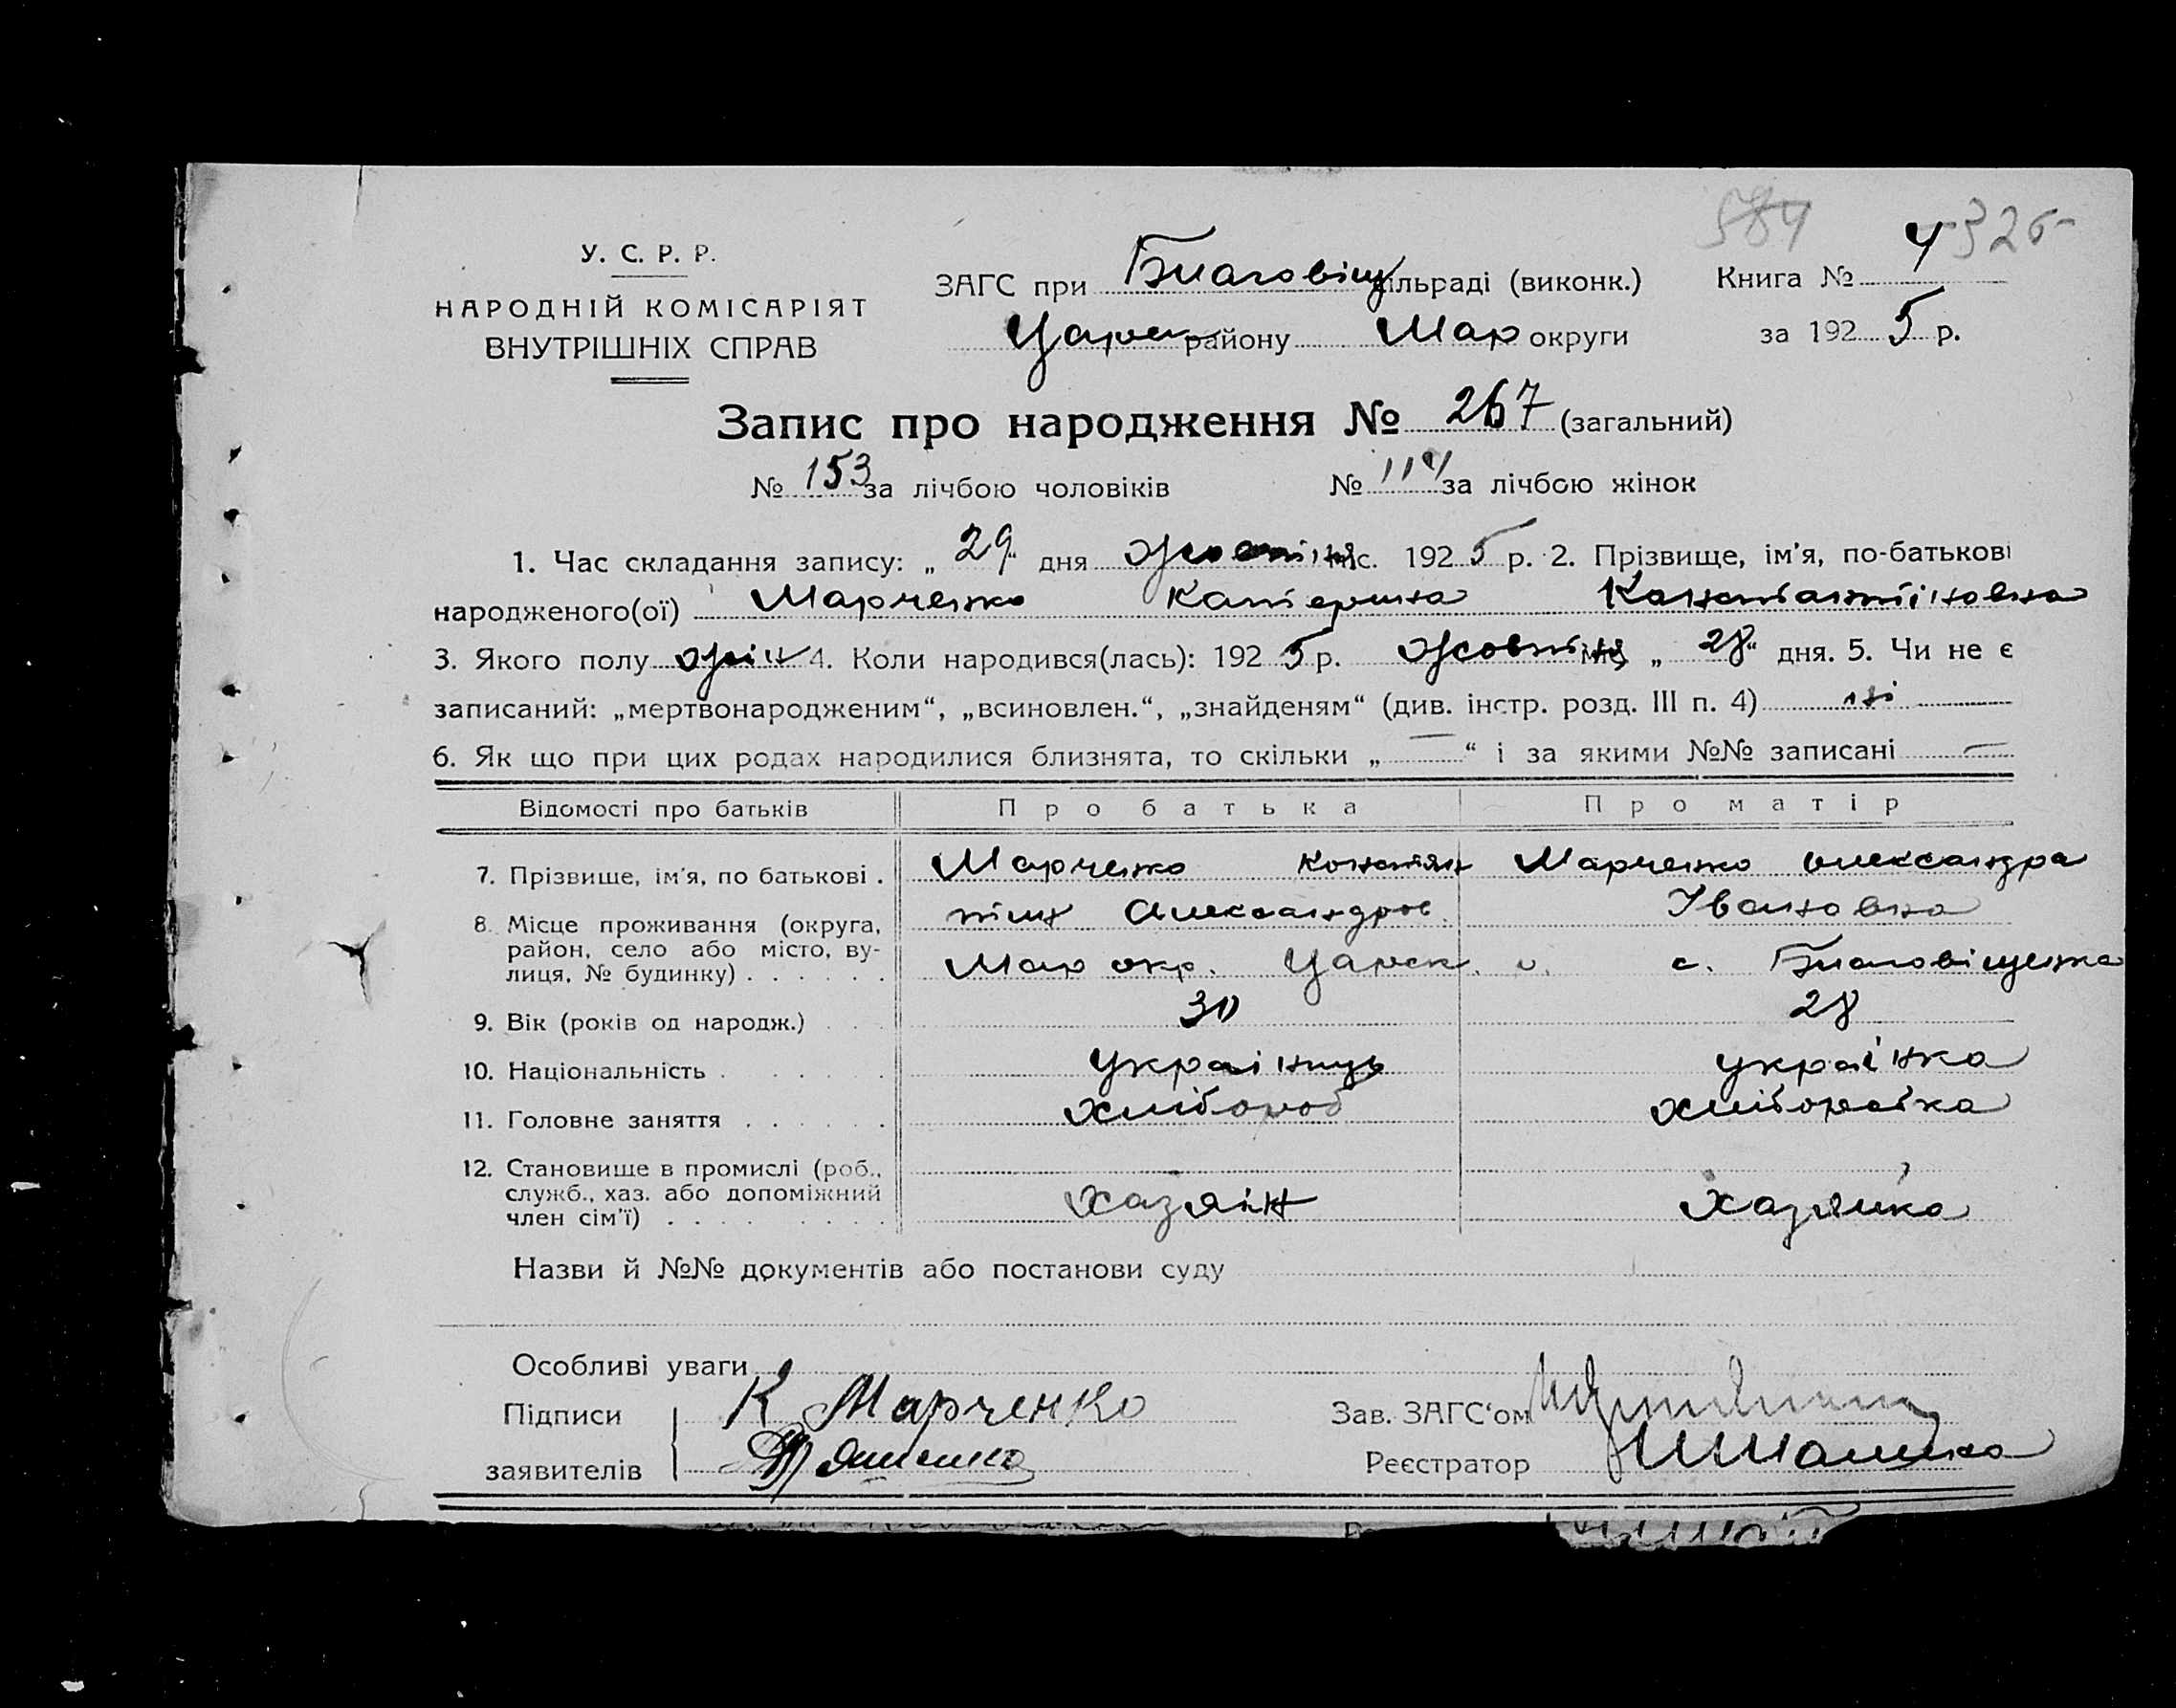 584 326
У. С. Р. Р.
НАРОДНІЙ КОМІСАРІЯТ
ВНУТРІШНІХ СПРАВ
ЗАГС при Благовіщ сільраді (виконк.) Книга № 4
Царек району Мар округи за 1925 р.
Запис про народження № 267 (загальний)
№ 153 за лічбою чоловіків № 114 за лічбою жінок
1. Час складання запису: „ 29 “ дня жовтня міс. 1925 р. 2. Прізвище, ім'я, по-батькові
народженого(ої) Марченко Катерина Констянтіновна
3. Якого полу жін 4. Коли народився(лась): 1925 р. жовтня міс „ 28 “ дня. 5. Чи не є
записаний: „мертвонародженим“, „всиновлен.“, „знайденям“ (див. інстр. розд. III п. 4) ні
6. Як що при цих родах народилися близнята, то скільки „ — “ і за якими №№ записані —
Відомості про батьків Про батька Про матір
7. Прізвише, ім'я, по батькові . Марченко Констян Марченко Олександра
тін Олександров. Івановна
8. Місце проживання (округа,
район, село або місто, ву-
лиця, № будинку) . . . . . . Мар окр. Царек. с. Благовіщенка
9. Вік (років од народж.) . . . 30 28
10. Національність . . . . . українць українка
11. Головне заняття . . . . . . хлібороб хліборобка
12. Становише в промислі (роб.,
служб., хаз. або допоміжний
член сім'ї) . . . . . . . . . хазяін хазяйка
Назви й №№ документів або постанови суду
Особливі уваги
Підписи К Марченко Зав. ЗАГС‘ом
заявителів Реєстратор